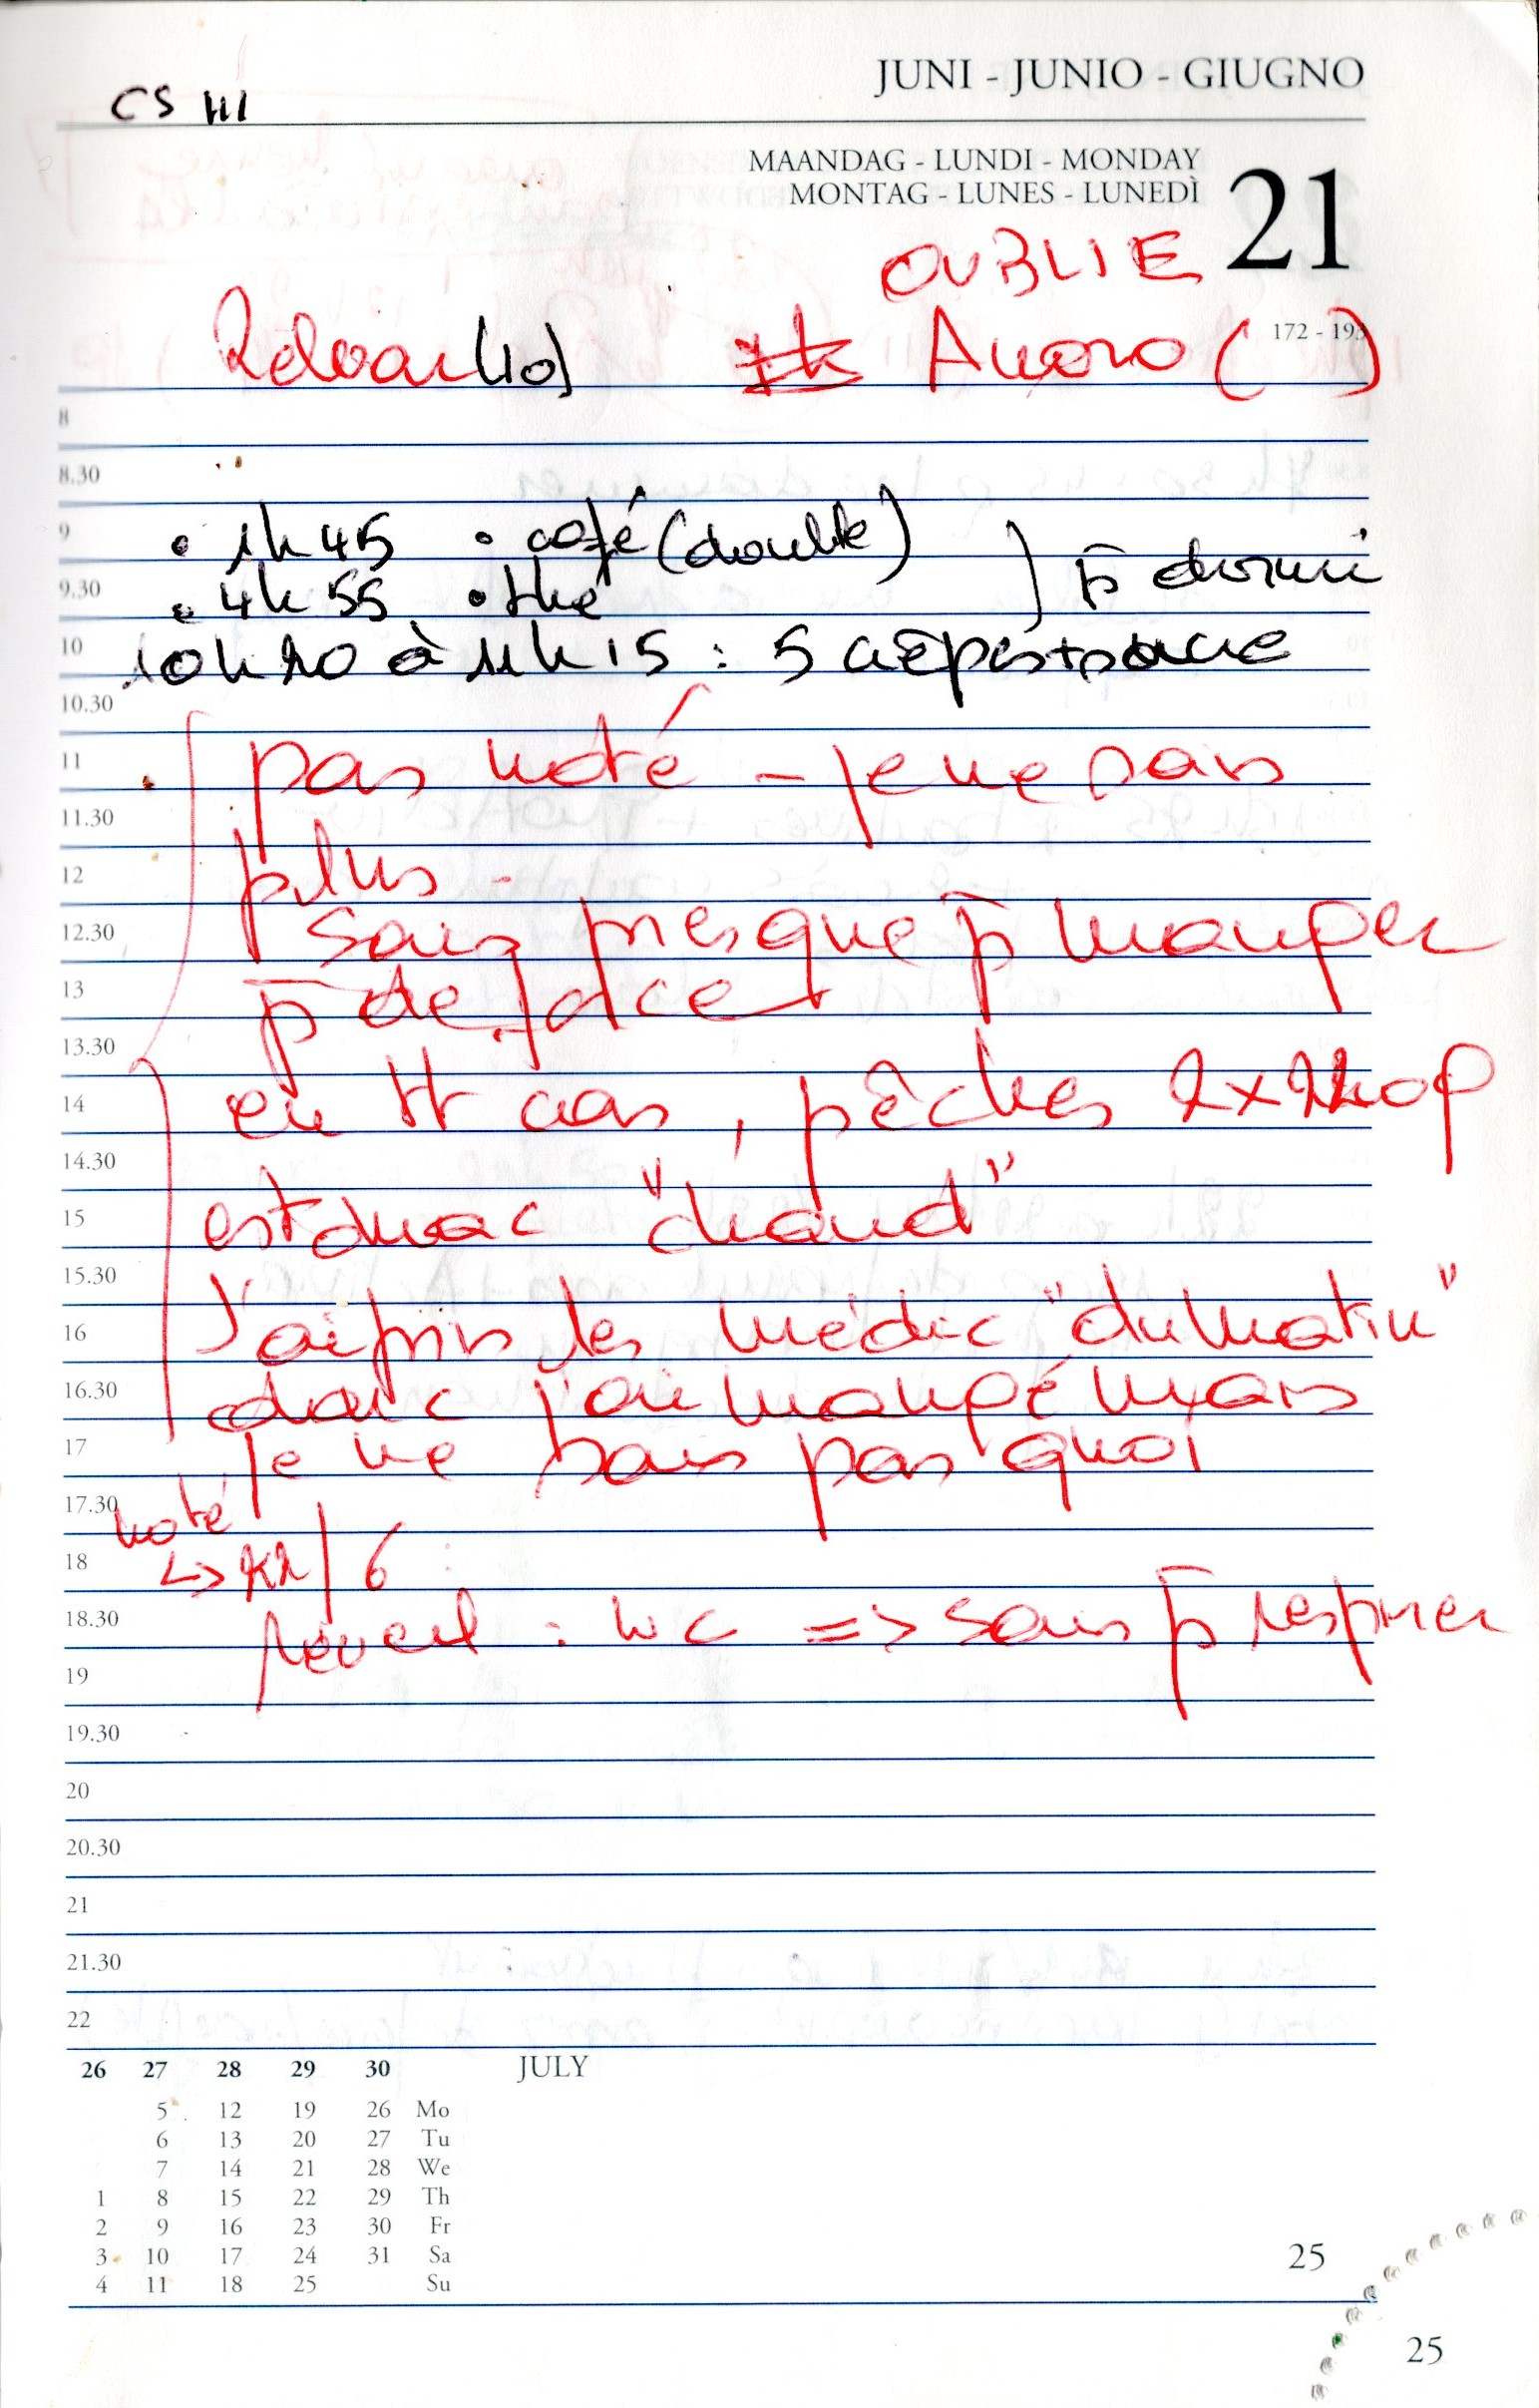 JUNI - JUNIO - GIUGNO
CS III
MAANDAG - LUNDI - MONDAY
MONTAG - LUNES - LUNEDÌ
21
OUBLIE
172 - 193
(10) ( )
8
8.30
9 • 1h45 • café (double)
9.30 • 4h55 • thé } p̄ dormi
10 10h20 à 11h15 : 5
10.30
11 pas noté - je ne sais
11.30
12 plus -
12.30 sais presque p̄ manger
13 p̄ de face
13.30
14 en tt cas, pêches 2x
14.30
15 estomac "chaud"
15.30
16 J'ai pris les médic "du matin"
16.30 donc j'ai mangé mais
17 je ne sais pas quoi
17.30 noté
18 ↳ 22/6 :
18.30 réveil : WC => sans p̄ respirer
19
19.30
20
20.30
21
21.30
22
26 27 28 29 30 JULY
5 12 19 26 Mo
6 13 20 27 Tu
7 14 21 28 We
1 8 15 22 29 Th
2 9 16 23 30 Fr
3 10 17 24 31 Sa
4 11 18 25 Su
25
25